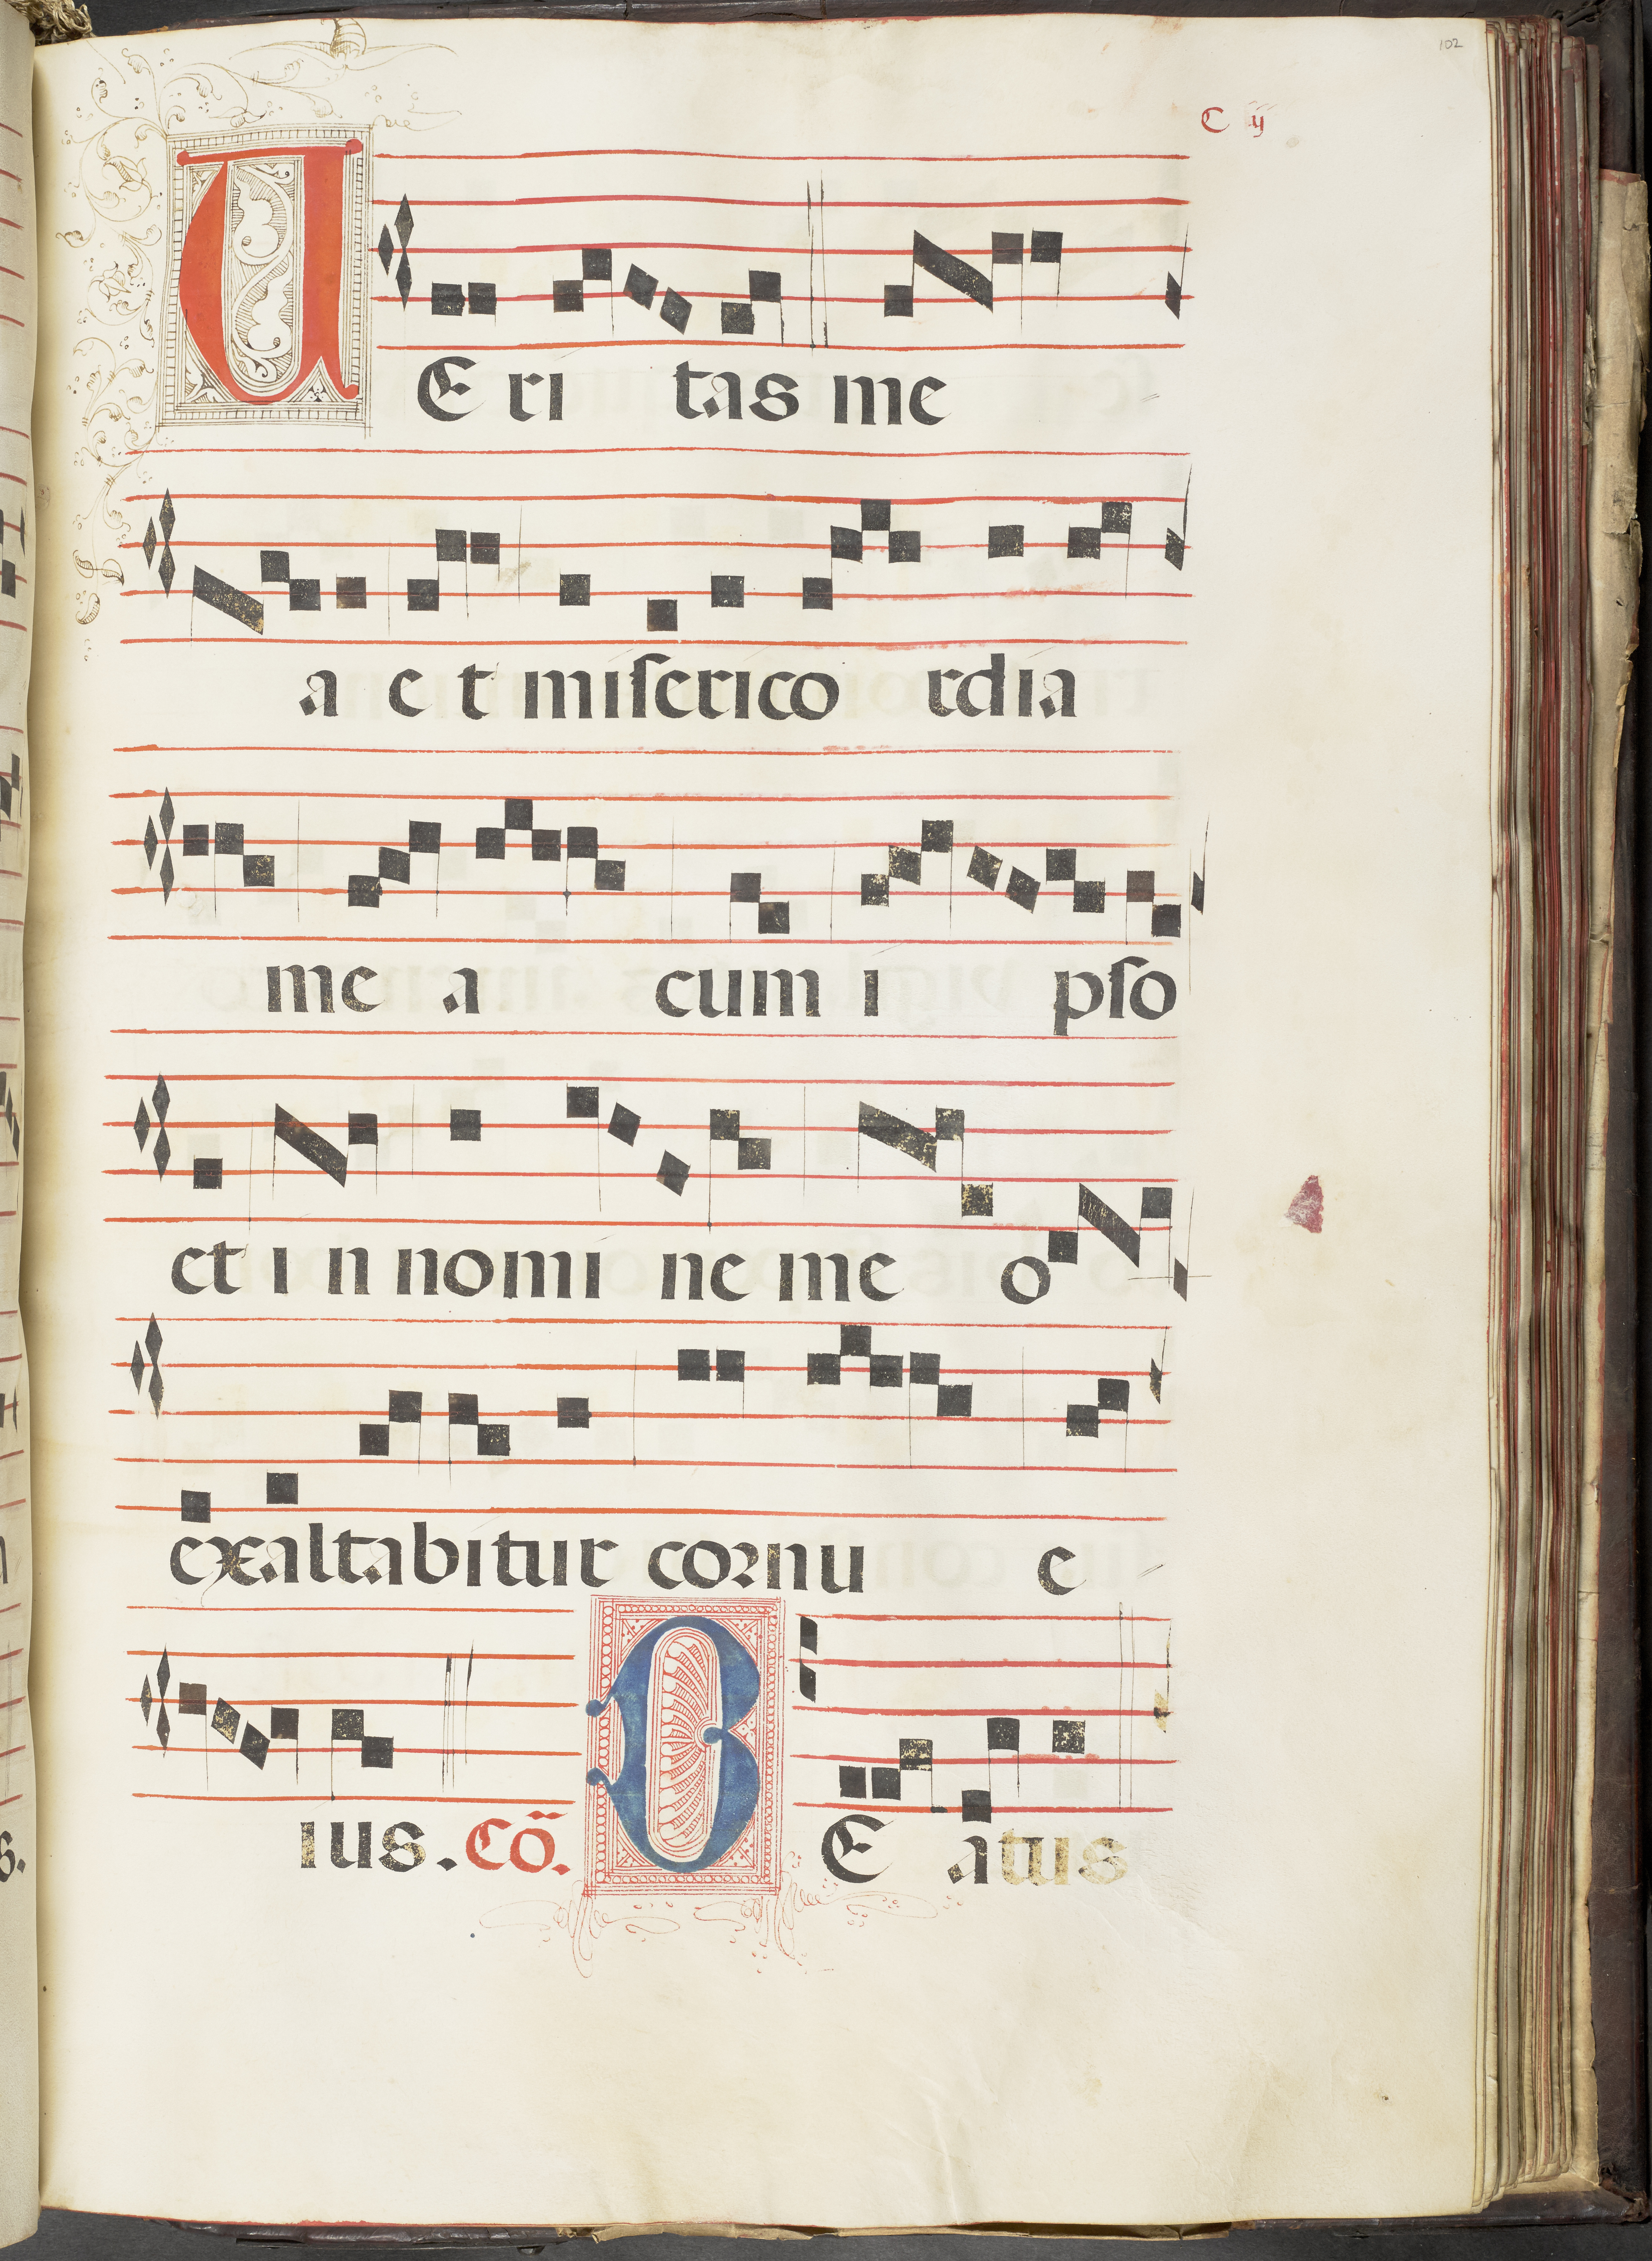 102
C ij
VE ri tas me
a e t miſerico rdia
me a cum i pſo
et i n nomi ne me o
exaltabitur cornu e
ius. Cō. BE atus